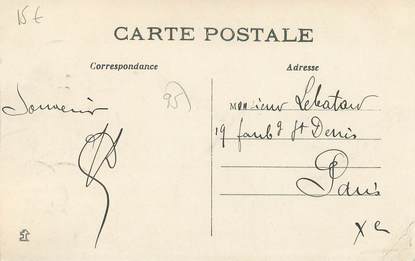 15 €
CARTE POSTALE
Correspondance
Adresse
95
Souvenir
Monsieur Lebatard
19 faub^g St Denis
Paris
Xe